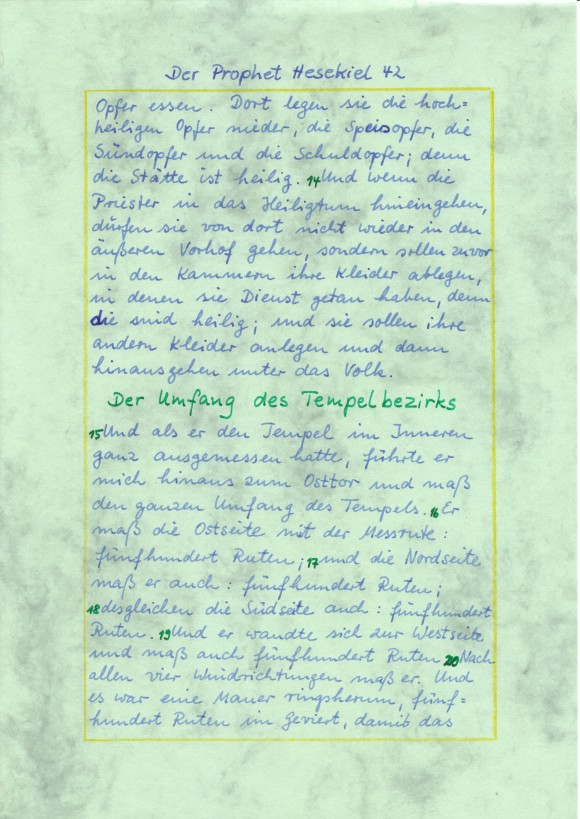 Der Prophet Hesekiel 42
Opfer essen. Dort legen sie die hoch=
heiligen Opfer nieder, die Speisopfer, die
Sündopfer und die Schuldopfer; denn
die Stätte ist heilig. 14 Und wenn die
Priester in das Heiligtum hineingehen,
dürfen sie von dort nicht wieder in den
äußeren Vorhof gehen, sondern sollen zuvor
in den Kammern ihre Kleider ablegen,
in denen sie Dienst getan haben, denn
die sind heilig; und sie sollen ihre
andern Kleider anlegen und dann
hinausgehen unter das Volk.
Der Umfang des Tempelbezirks
15 Und als er den Tempel im Inneren
ganz ausgemessen hatte, führte er
mich hinaus zum Osttor und maß
den ganzen Umfang des Tempels. 16 Er
maß die Ostseite mit der Messrute:
fünfhundert Ruten; 17 und die Nordseite
maß er auch: fünfhundert Ruten;
18 desgleichen die Südseite auch: fünfhundert
Ruten. 19 Und er wandte sich zur Westseite
und maß auch fünfhundert Ruten 20 Nach
allen vier Windrichtungen maß er. Und
es war eine Mauer ringsherum, fünf=
hundert Ruten im Geviert, damit das